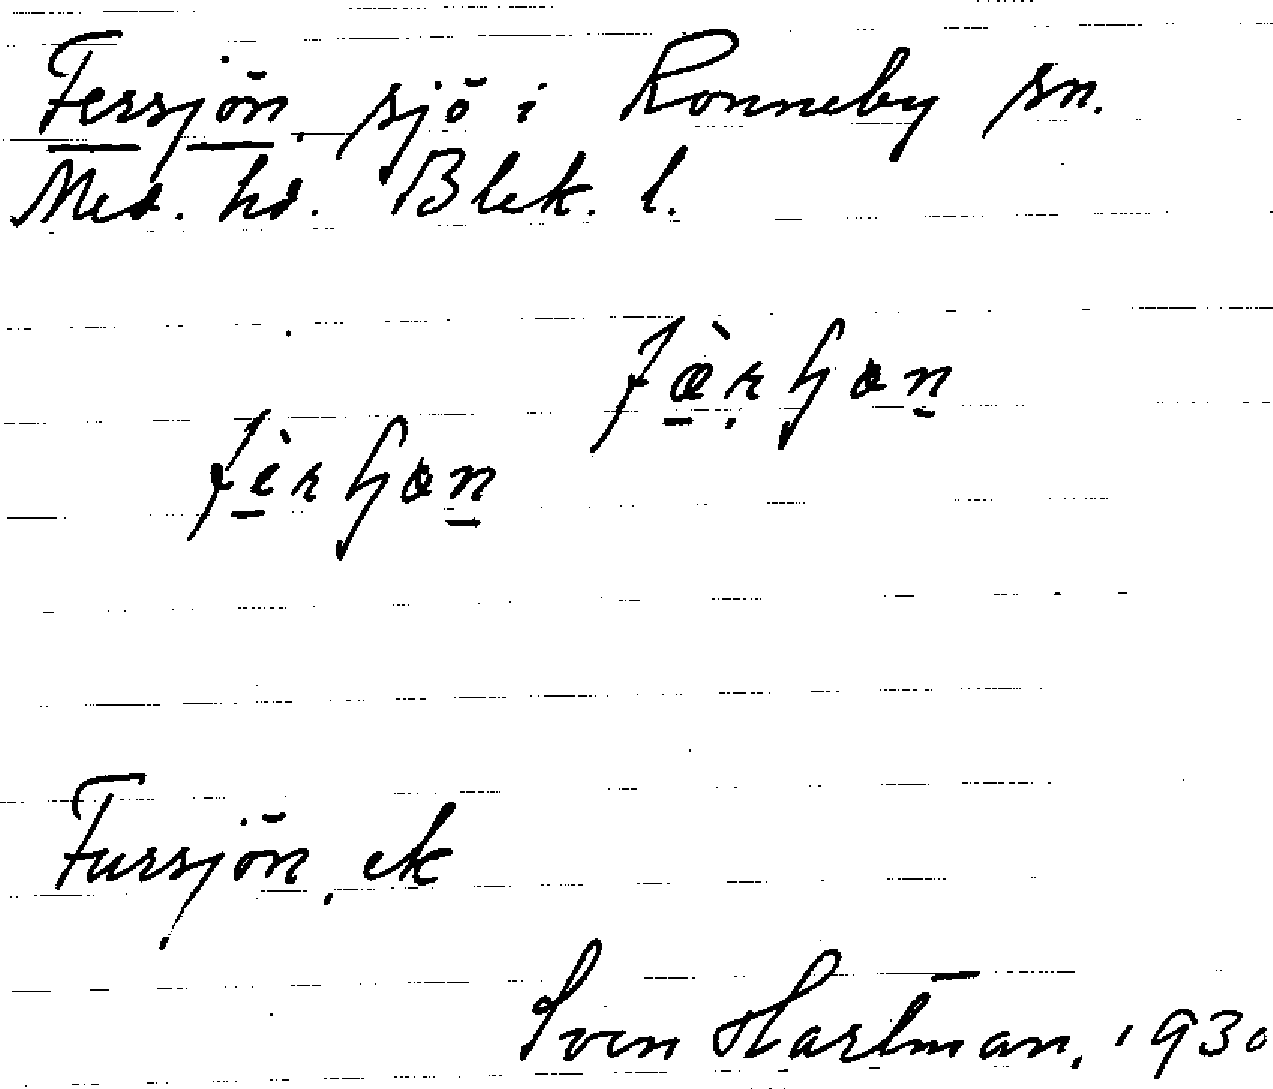 Fersjön, sjö i Ronneby sn.
Med. hd. Blek. l.
Fursjön, ek
Sven Hartman, 1930